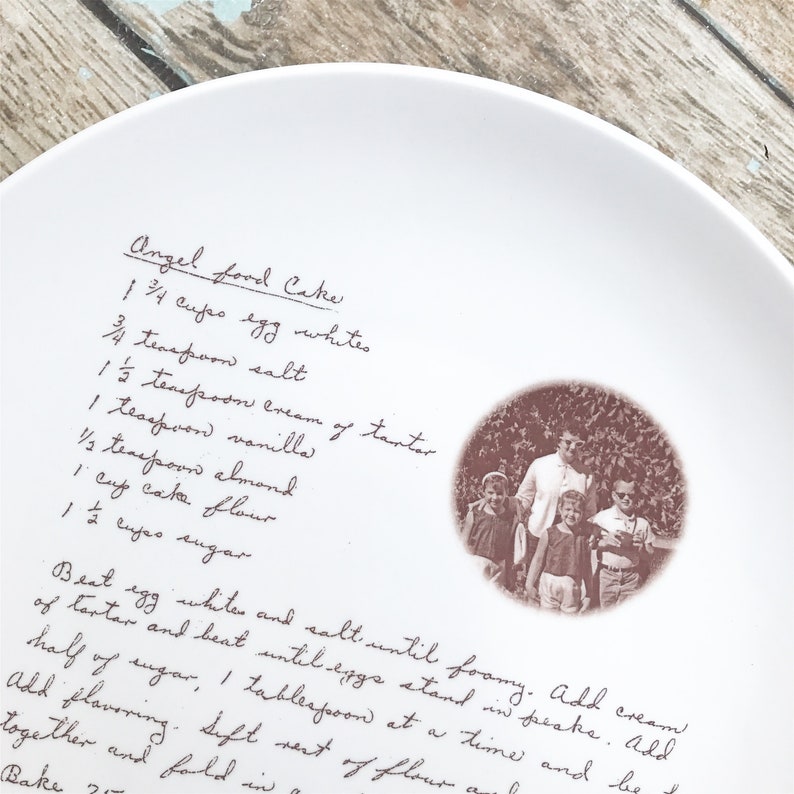 Angel food Cake
1 3/4 cups egg whites
3/4 teaspoon salt
1 1/2 teaspoon cream of tartar
1 teaspoon vanilla
1/2 teaspoon almond
1 cup cake flour
1 1/2 cups sugar
Beat egg whites and salt until foamy. Add cream
of tartar and beat until eggs stand in peaks. Add
half of sugar, 1 tablespoon at a time and be
Add flavoring. Sift rest of flour
together and fold in
Bake